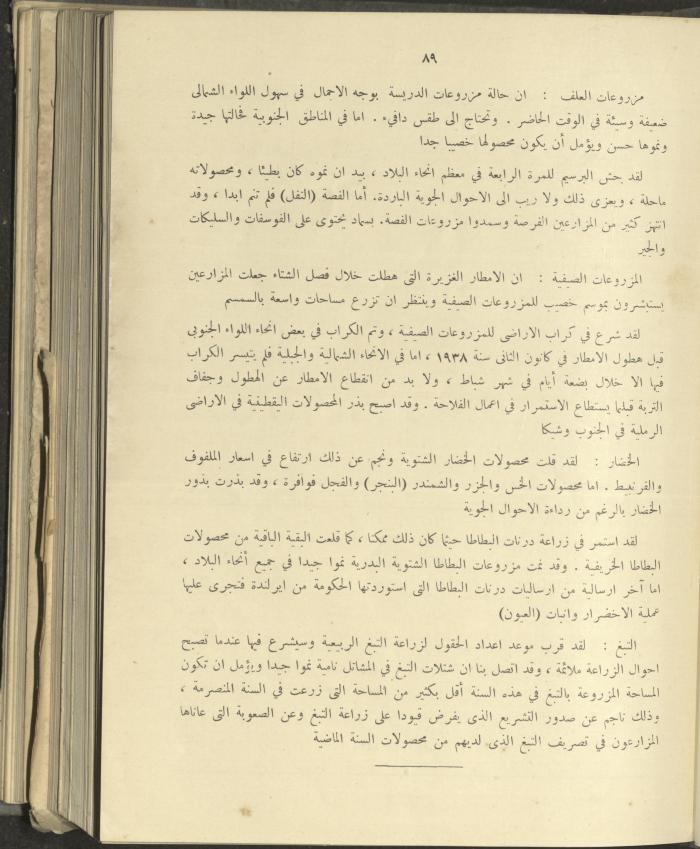 ٨٩
مزروعات العلف : ان حالة مزروعات الدريسة بوجه الاجمال في سهول اللواء الشمالى
ضعيفة وسيئة في الوقت الحاضر . وتحتاج الى طقس دافىء . اما في المناطق الجنوبية فحالتها جيدة
ونموها حسن ويؤمل أن يكون محصولها خصيبا جدا
لقد حش البرسيم للمرة الرابعة في معظم انحاء البلاد ، بيد ان نموه كان بطيئا ، ومحصولاته
ماحلة ، ويعزى ذلك ولا ريب الى الاحوال الجوية الباردة. أما الفصة (النفل) فلم تنم ابدا ، وقد
انتهز كثير من المزارعين الفرصة وسمدوا مزروعات الفصة. بسماد يحتوى على الفوسفات والسليكات
والجير
المزروعات الصيفية : ان الامطار الغزيرة التى هطلت خلال فصل الشتاء جعلت المزارعين
يستبشرون بموسم خصيب للمزروعات الصيفية وينتظر ان تزرع مساحات واسعة بالسمسم
لقد شرع في كراب الاراضى للمزروعات الصيفية ، وتم الكراب في بعض انحاء اللواء الجنوبى
قبل هطول الامطار في كانون الثانى سنة ١٩٣٨ ، اما في الانحاء الشمالية والجبلية فلم يتيسر الكراب
فيها الا خلال بضعة أيام في شهر شباط ، ولا بد من انقطاع الامطار عن الهطول وجفاف
التربة قبلما يستطاع الاستمرار في اعمال الفلاحة . وقد اصبح بذر المحصولات اليقطينية في الاراضى
الرملية في الجنوب وشيكا
الخضار : لقد قلت محصولات الخضار الشتوية ونجم عن ذلك ارتفاع في اسعار الملفوف
والقرنبيط . اما محصولات الخس والجزر والشمندر (البنجر) والفجل فوافرة ، وقد بذرت بذور
الخضار بالرغم من رداءة الاحوال الجوية
لقد استمر في زراعة درنات البطاطا حيثما كان ذلك ممكنا ، كما قلعت البقية الباقية من محصولات
البطاطا الخريفية . وقد نمت مزروعات البطاطا الشتوية البدرية نموا جيدا في جميع أنحاء البلاد ،
اما آخر ارسالية من ارساليات درنات البطاطا التى استوردتها الحكومة من ايرلندة فتجرى عليها
عملية الاخضرار وانبات (العيون)
التبغ : لقد قرب موعد اعداد الحقول لزراعة التبغ الربيعية وسيشرع فيها عندما تصبح
احوال الزراعة ملائمة ، وقد اتصل بنا ان شتلات التبغ في المشاتل نامية نموا جيدا ويؤمل ان تكون
المساحة المزروعة بالتبغ في هذه السنة أقل بكثير من المساحة التى زرعت في السنة المنصرمة ،
وذلك ناجم عن صدور التشريع الذى يفرض قيودا على زراعة التبغ وعن الصعوبة التى عاناها
المزارعون في تصريف التبغ الذى لديهم من محصولات السنة الماضية